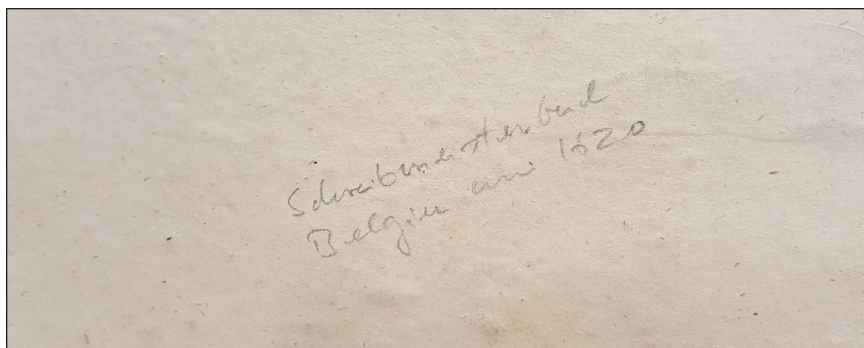 Schreibmeisterbuch
Belgien um 1620